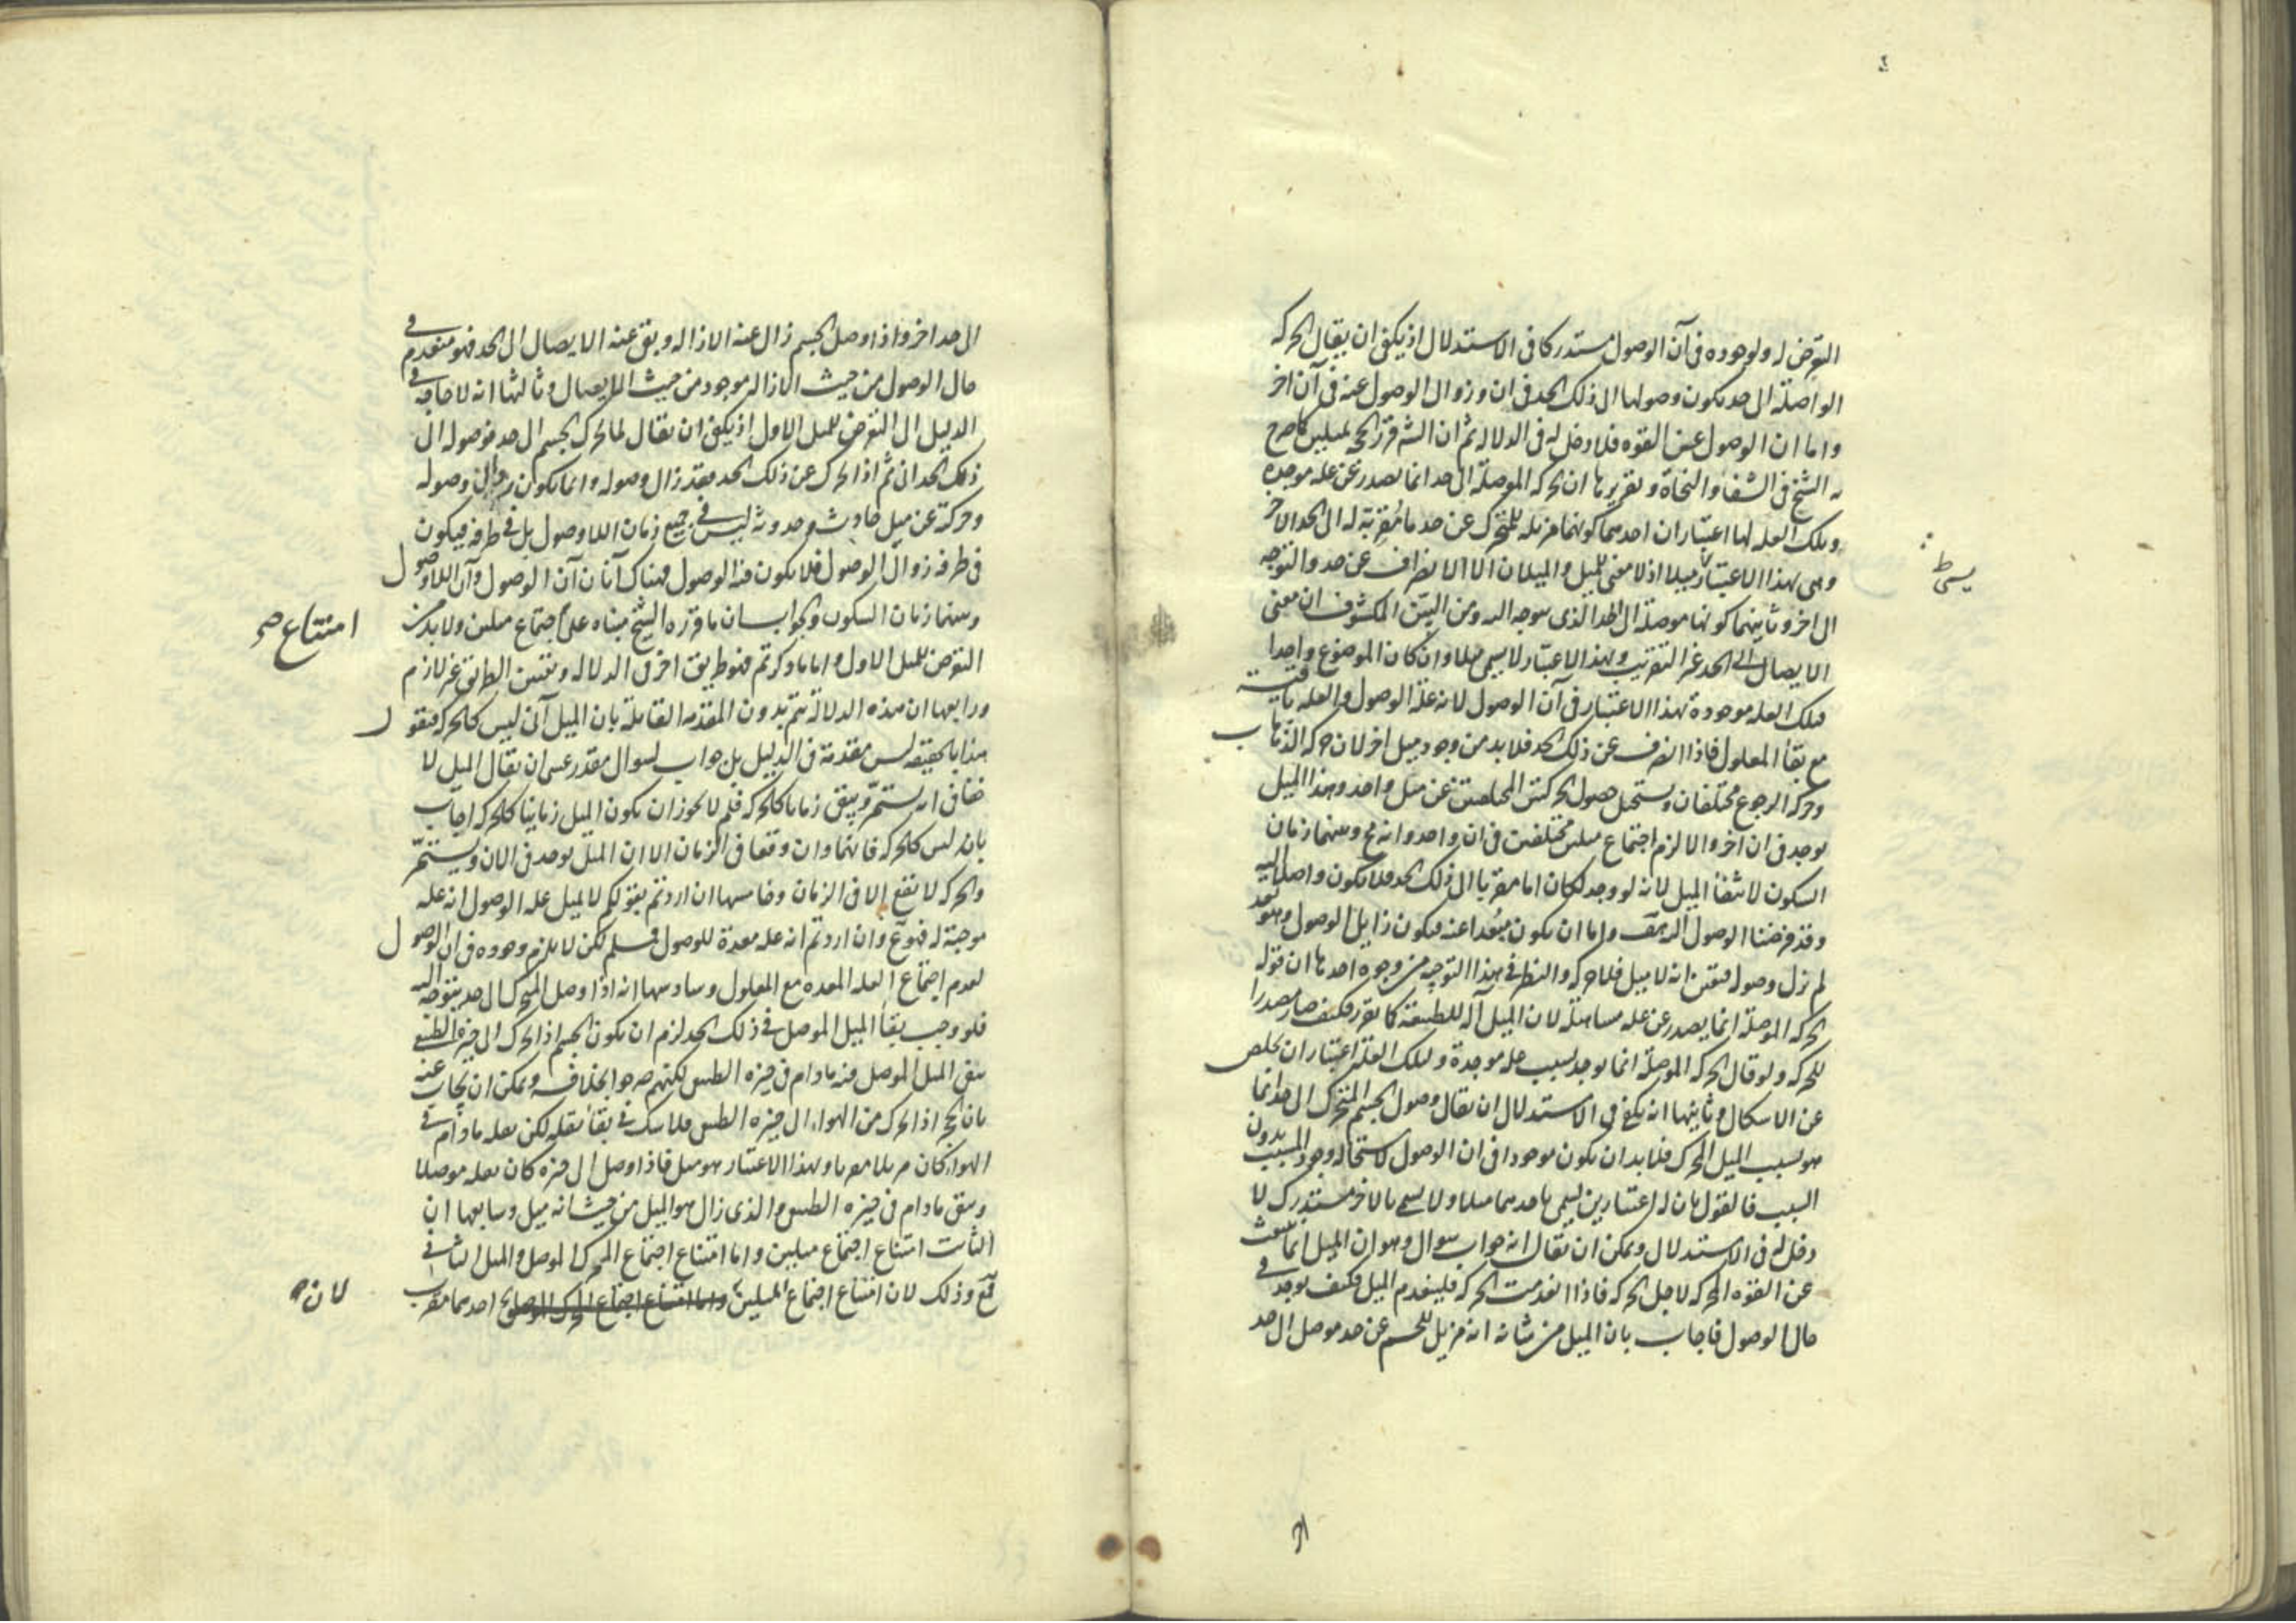 التعرض له ولوجوده فى آن الوصول مستدركا فى الاستدلال اذ يكفى ان يقال الحركه
الواصلة الى حد يكون وصولها الى ذلك الحد فى ان وزوال الوصول عنه فى آن اخر
واما ان الوصول عن القوه فلا دخل له فى الدلاله ثم ان الش قرر الحجة بميلين كما صرح
به الشيخ فى الشفا والنجاة وتقريرها ان الحركه الموصلة الى حد انما يصدر عن عله موجدة
وتلك العله لها اعتباران احدهما كونها مزيله للمتحرك عن حد ما مقربة له الى الحد الاخر
وهى بهذا الاعتبار ميلا اذ لا معنى للميل والميلان الا الانصراف عن حد والتوجه
الى اخر وثانيهما كونها موصلة الى الحد الذى يتوجه اليه ومن البين المكشوف ان معنى
الايصال الى الحد غير التقريب وبهذا الاعتبار لا يسمى ميلا وان كان الموضوع واحدا
فتلك العله موجودة بهذا الاعتبار فى آن الوصول لانه علة الوصول والعله باقية
مع بقا المعلول فاذا انصرف عن ذلك الحد فلا بد من وجود ميل اخر لان حركه الذهاب
وحركه الرجوع مختلفان ويستحيل حصول الحركتين المختلفتين عن ميل واحد وهذا الميل
يوجد فى ان اخر والا لزم اجتماع ميلين مختلفين فى ان واحد وانه مح وبينهما زمان
السكون لانتفا الميل لانه لو وجد لكان اما مقربا الى ذلك الحد فلا يكون واصلا اليه
وقد فرضنا الوصول اليه هف واما ان يكون مبعدا عنه فيكون زايل الوصول وهو بعد
لم يزل وصوله فتعين انه لا ميل فلا حركه والنظر فى هذا التوجيه من وجوه احدها ان قوله
الحركه الموصلة انما يصدر عن عله مساهلة لان الميل آلة للطبيعة كما تقرر فكيف صار مصدرا
للحركه ولو قال الحركه الموصلة انما يوجد بسبب عله موجدة ولتلك العلة اعتباران تخلص
عن الاشكال وثانيها انه يكفى فى الاستدلال ان يقال وصول الجسم المتحرك الى حد انما
هو بسبب الميل المحرك فلا بد ان يكون موجودا فى ان الوصول لاستحاله وجود المسبب بدون
السبب فالقول بان له اعتبارين يسمى باحدهما ميلا ولا يسمى بالاخر مستدرك لا
دخل له فى الاستدلال ويمكن ان يقال انه جواب سوال وهو ان الميل انما ينبعث
عن القوه المحركه لاجل الحركه فاذا انعدمت الحركه فلينعدم الميل فكيف يوجد فى
حال الوصول فاجاب بان الميل من شانه انه مزيل للجسم عن حد موصل الى حد
الى حد اخر واذا وصل الجسم زال عنه الازاله وبقى عنه الايصال الى الحد فهو منعدم فى
حال الوصول من حيث الازاله موجود من حيث الايصال وثالثها انه لا حاجه فى
الدليل الى التعرض للميل الاول اذ يكفى ان يقال لما تحرك الجسم الى حد فوصوله الى
ذلك الحد انى ثم اذا تحرك عن ذلك الحد فقد زال وصوله وانما يكون زوال وصوله
وحركته عن ميل حادث وحدوثه ليس فى جميع زمان اللاوصول بل فى طرفه فيكون
فى طرفه زوال الوصول فلا يكون فيه الوصول فهناك آنان آن الوصول وآن اللاوصول
وبينهما زمان السكون والجواب ان ما قرره الشيخ مبناه على اجتماع ميلين ولا بد من
امتناع صح
التعرض للميل الاول واما ما ذكرتم فهو طريق اخر فى الدلاله وتعيين الطريق غير لازم
ورابعها ان هذه الدلالة تتم بدون المقدمه القايلة بان الميل آنى ليس كالحركه فنقول
هذا بالحقيقه ليس مقدمة فى الدليل بل جواب لسوال مقدر عسى ان يقال الميل لا
خفا فى انه يستمر ويبقى زمانا كالحركه فلم لا يجوز ان يكون الميل زمانيا كالحركه اجاب
بانه ليس كالحركه فانهما وان وقعا فى الزمان الا ان الميل يوجد فى الان ويستمر
والحركه لا تقع الا فى الزمان وخامسها ان اردتم بقولكم الميل عله الوصول انه عله
موجبة له فهو مم وان اردتم انه عله معدة للوصول فمسلم لكن لا يلزم وجوده فى ان الوصول
لعدم اجتماع العله المعده مع المعلول وسادسها انه اذا وصل المتحرك الى حد يتوجه اليه
فلو وجب بقا الميل الموصل فى ذلك الحد لزم ان يكون الجسم اذا تحرك الى حيزه الطبيعى
يبقى الميل الموصل فيه ما دام فى حيزه الطبيعى لكنهم صرحوا بخلافه ويمكن ان يجاب عنه
بان الحجر اذا تحرك من الهواء الى حيزه الطبيعى فلا شك فى بقا ثقله لكن ثقله ما دام فى
الهواء كان مزيلا مقربا وبهذا الاعتبار هو ميل فاذا وصل الى حيزه كان ثقله موصلا
وبقى ما دام فى حيزه الطبيعى والذى زال هو الميل من حيث انه ميل وسابعها ان
الثابت امتناع اجتماع ميلين واما امتناع اجتماع المحرك الموصل والميل الثانى
فمم وذلك لان امتناع اجتماع الميلين واما امتناع اجتماع المحرك الموصل احدهما مقرب
لانه